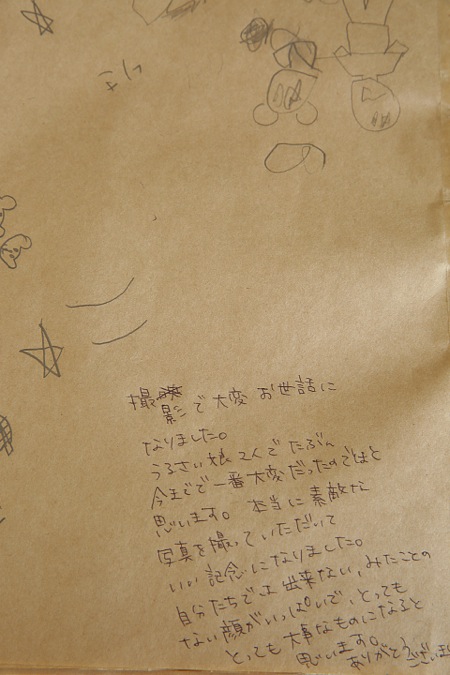 撮影で大変 お世話に
なりました。
うるさい娘2人で たぶん
今までで一番大変だったのではと
思います。 本当に素敵な
写真を撮っていただいて
いい記念になりました。
自分たちでは出来ない、みたことの
ない顔がいっぱいで、とっても
とっても大事なものになると
思います。
ありがとうございま